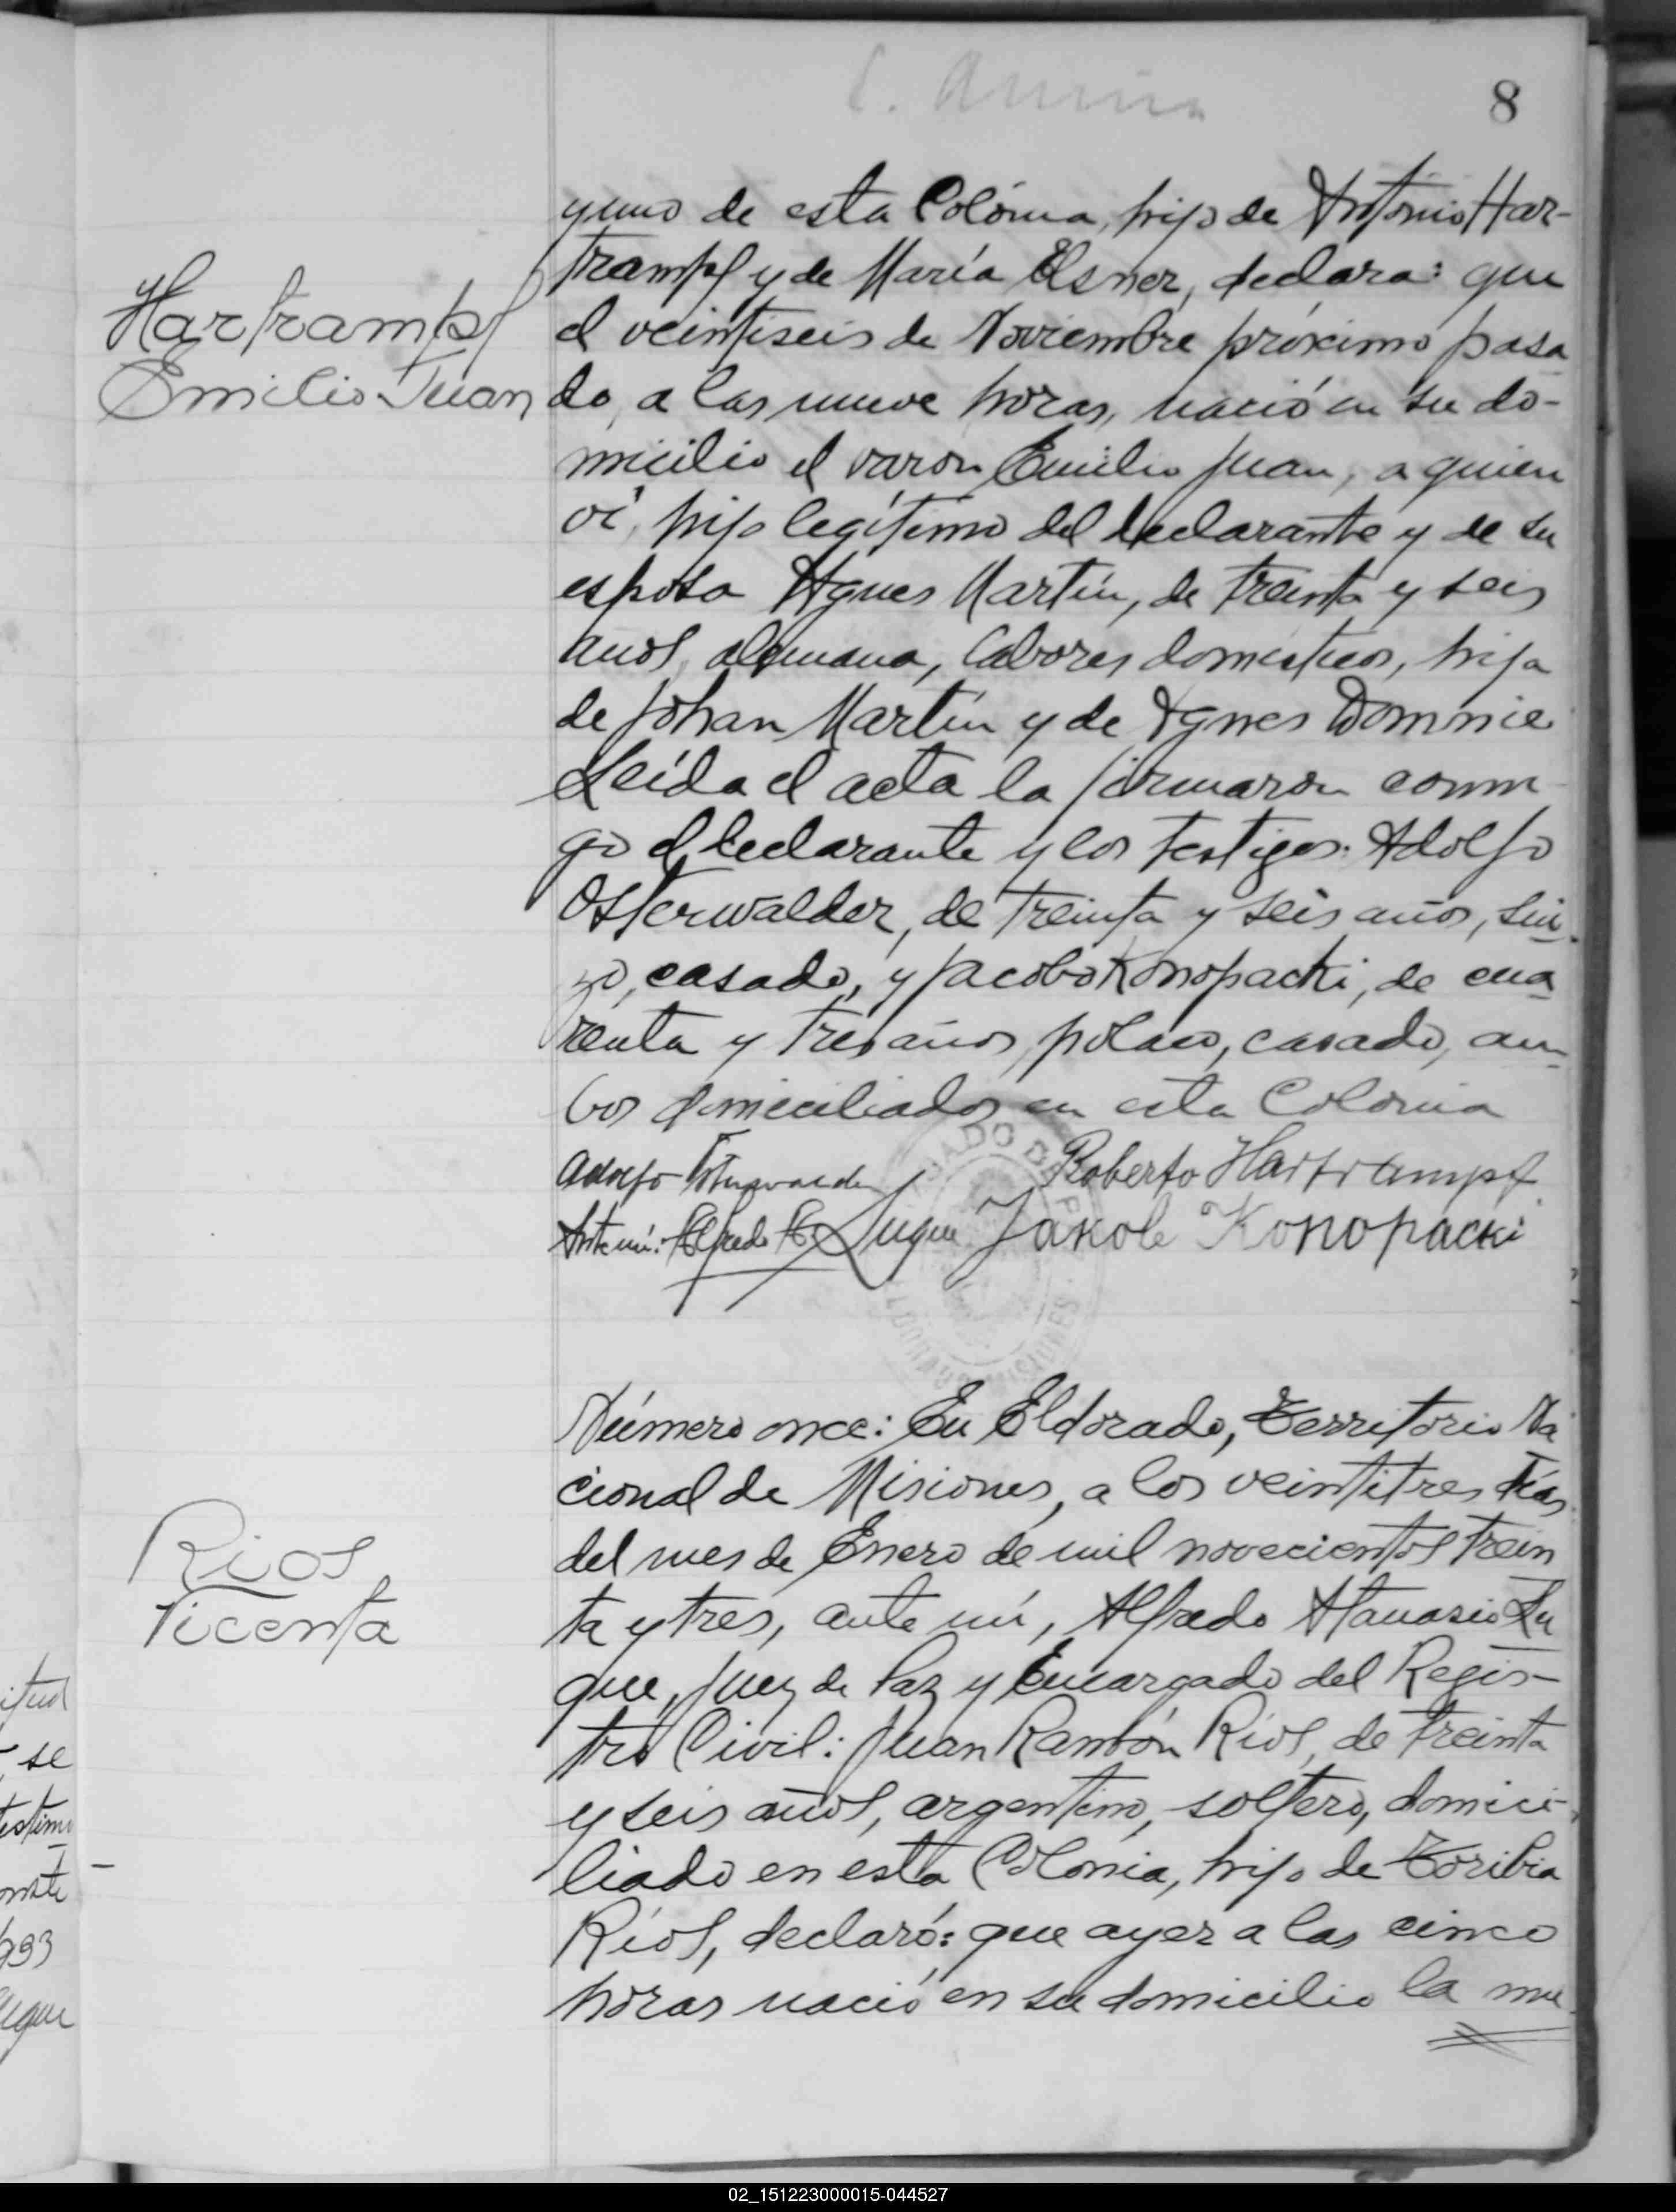 8
yuno de esta Colonia, hijo de Antonio Har-
trampf y de María Elsner, declara: que
el veintiseis de Noviembre próximo pasa
do, a las nueve horas, nació en su do-
micilio el varon Emilio Juan, a quien
ví, hijo legítimo del declarante y de su
esposa Agnes Martín, de treinta y seis
años, alemana, labores domésticos, hija
de Johan Martín y de Agnes Domnie
Leída el acta la firmaron conmi
go el declarante y los testigos: Adolfo
Osterwalder, de treinta y seis años, sui
zo, casado, y Jacobo Konopacki, de cua
renta y tres años, polaco, casado, am
bos domiciliados en esta Colonia
Hartrampf
Emilio Juan
Adolfo Osterwalder Roberto Hartrampf
Ante mí: Alfredo A. Luque Jakob Konopacki
JUZGADO DE PAZ
ELDORADO MISIONES
Número once: En Eldorado, Territorio Na
cional de Misiones, a los veintitres días
del mes de Enero de mil novecientos trein
ta y tres, ante mí, Alfredo Atanasio Lu
que, Juez de Paz y Encargado del Regis-
tro Civil: Juan Ramón Ríos, de treinta
y seis años, argentino, soltero, domici-
liado en esta Colonia, hijo de Toribia
Ríos, declaró: que ayer a las cinco
horas nació en su domicilio la mu
Rios
Vicenta
itud
, se
testimo
993
02_151223000015-044527